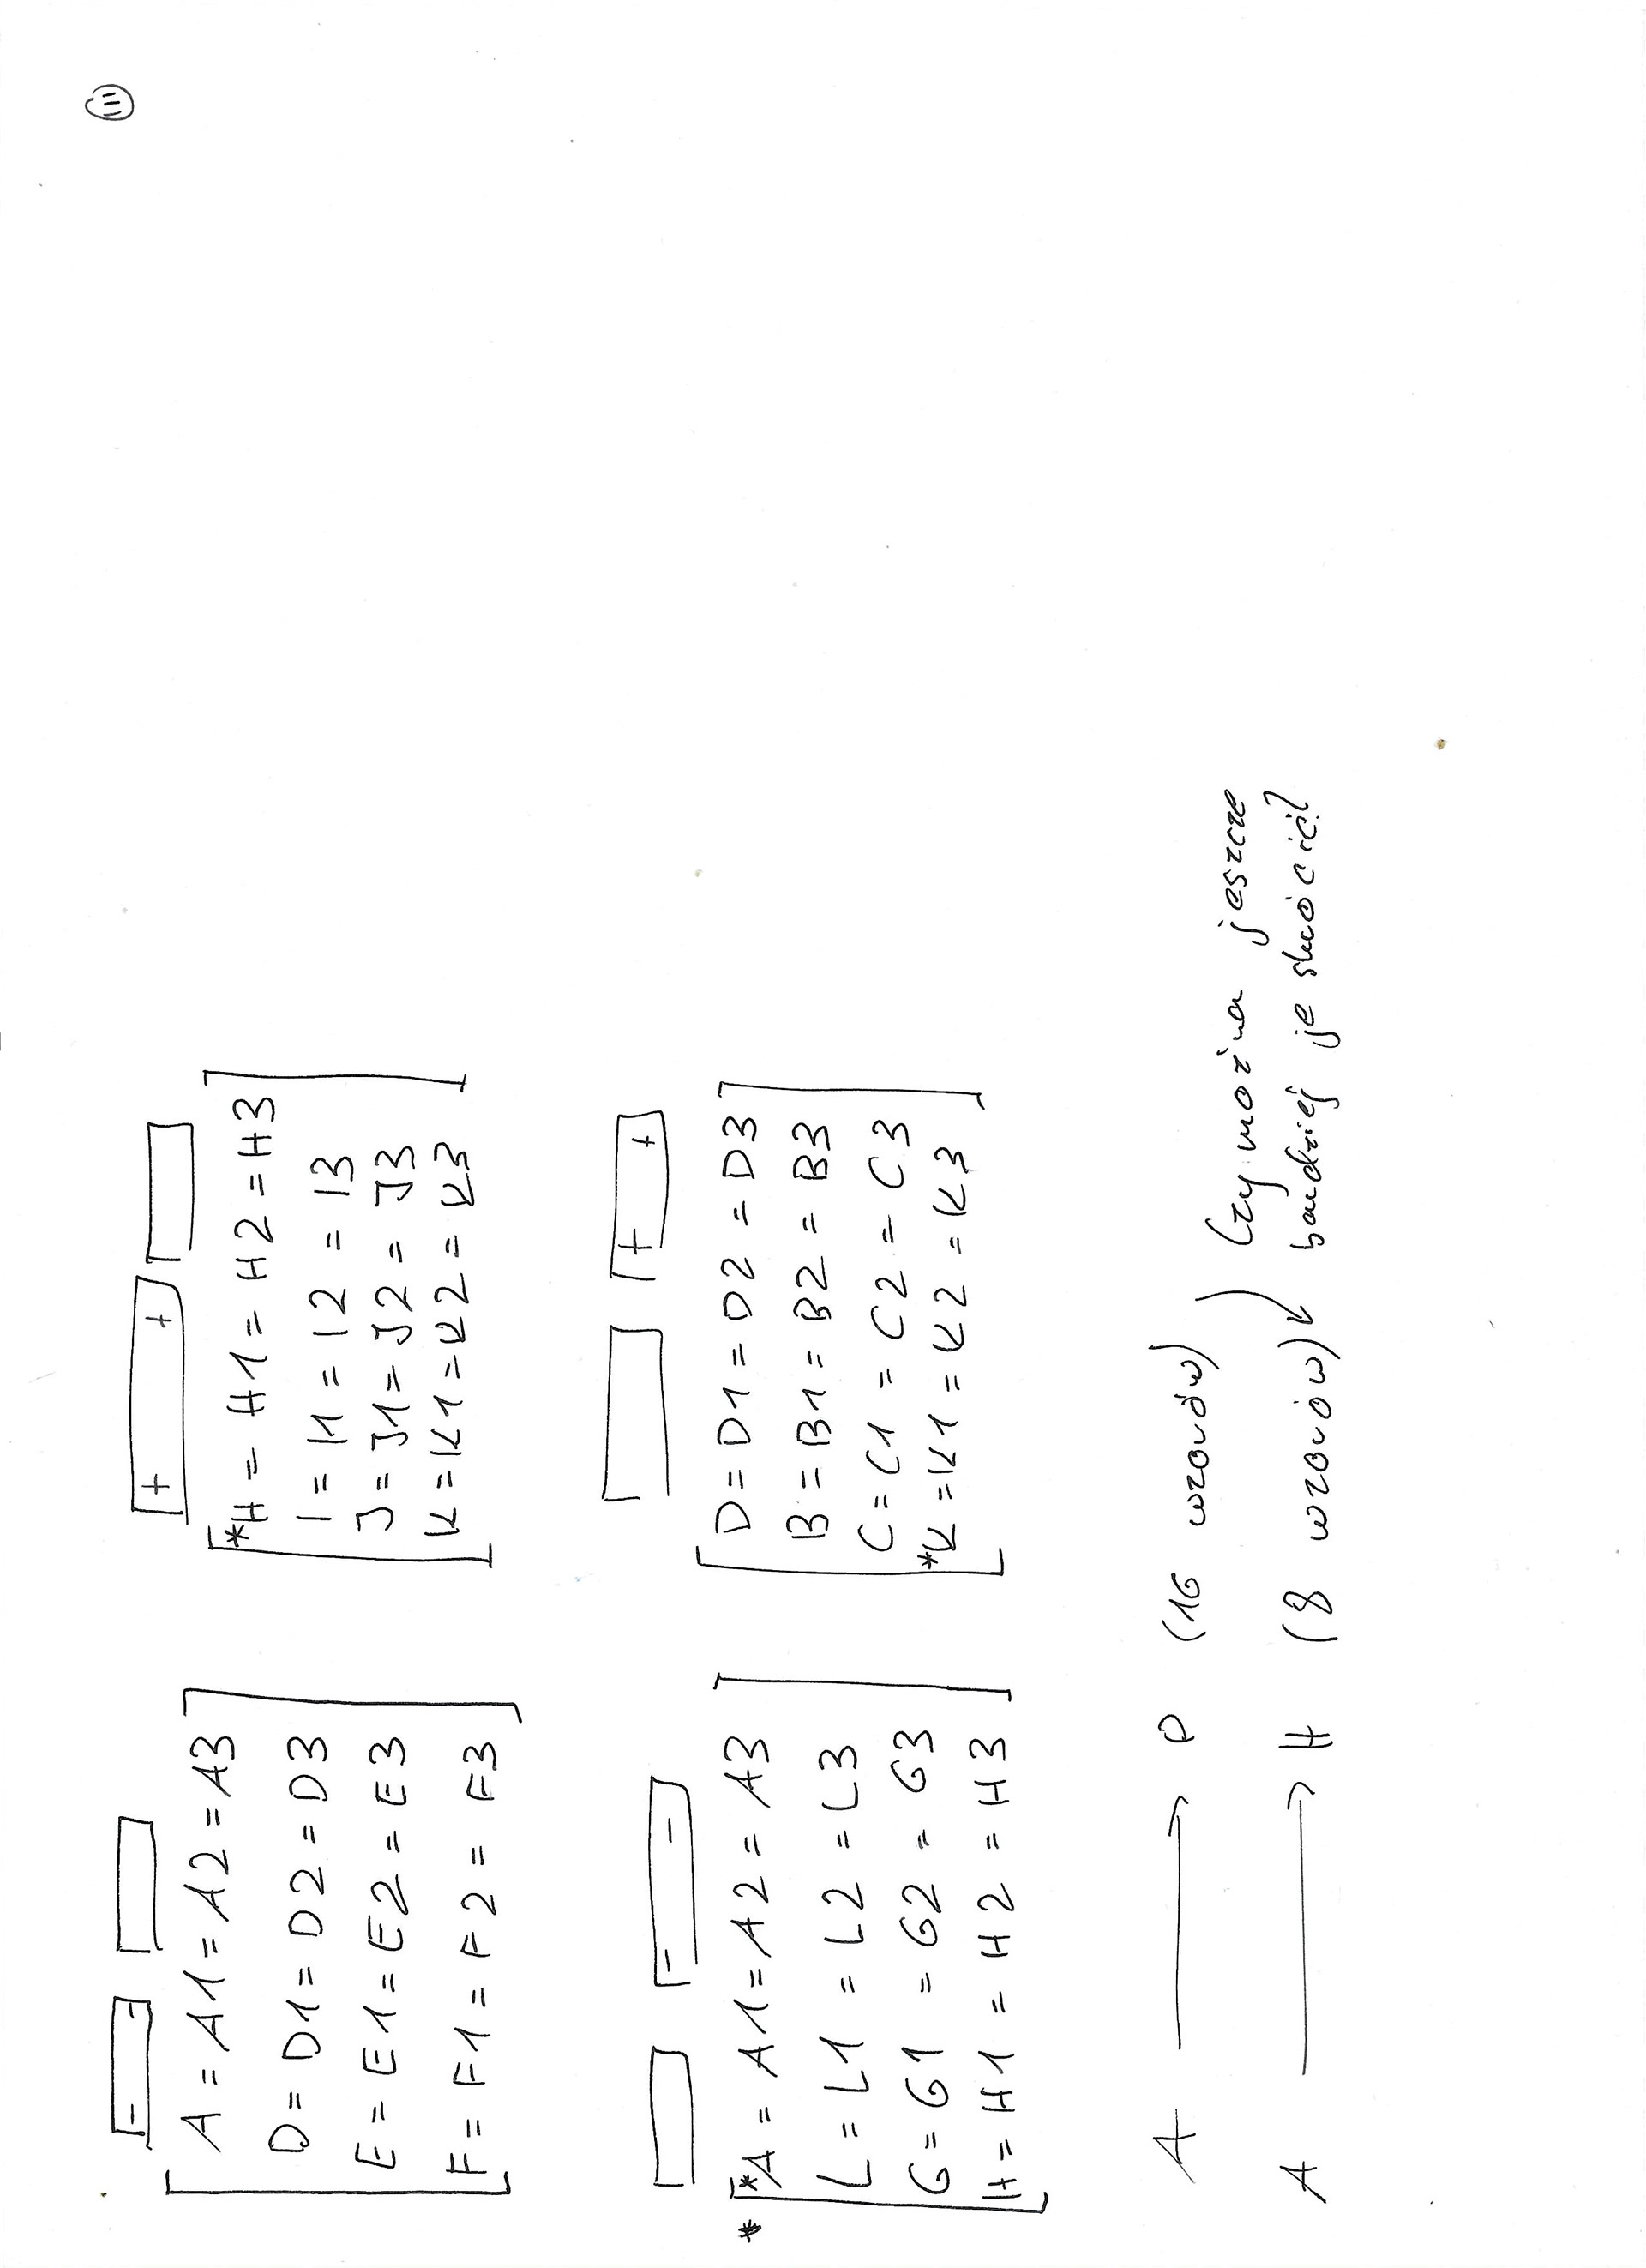 III
- -
+ +
A = A1 = A2 = A3
D = D1 = D2 = D3
E = E1 = E2 = E3
F = F1 = F2 = F3
*H = H1 = H2 = H3
I = I1 = I2 = I3
J = J1 = J2 = J3
K = K1 = K2 = K3
- -
+ +
* *A = A1 = A2 = A3
L = L1 = L2 = L3
G = G1 = G2 = G3
H = H1 = H2 = H3
D = D1 = D2 = D3
B = B1 = B2 = B3
C = C1 = C2 = C3
*K = K1 = K2 = K3
A → P (16 wzorów) Czy można jeszcze
A → H (8 wzorów) bardziej je skrócić?